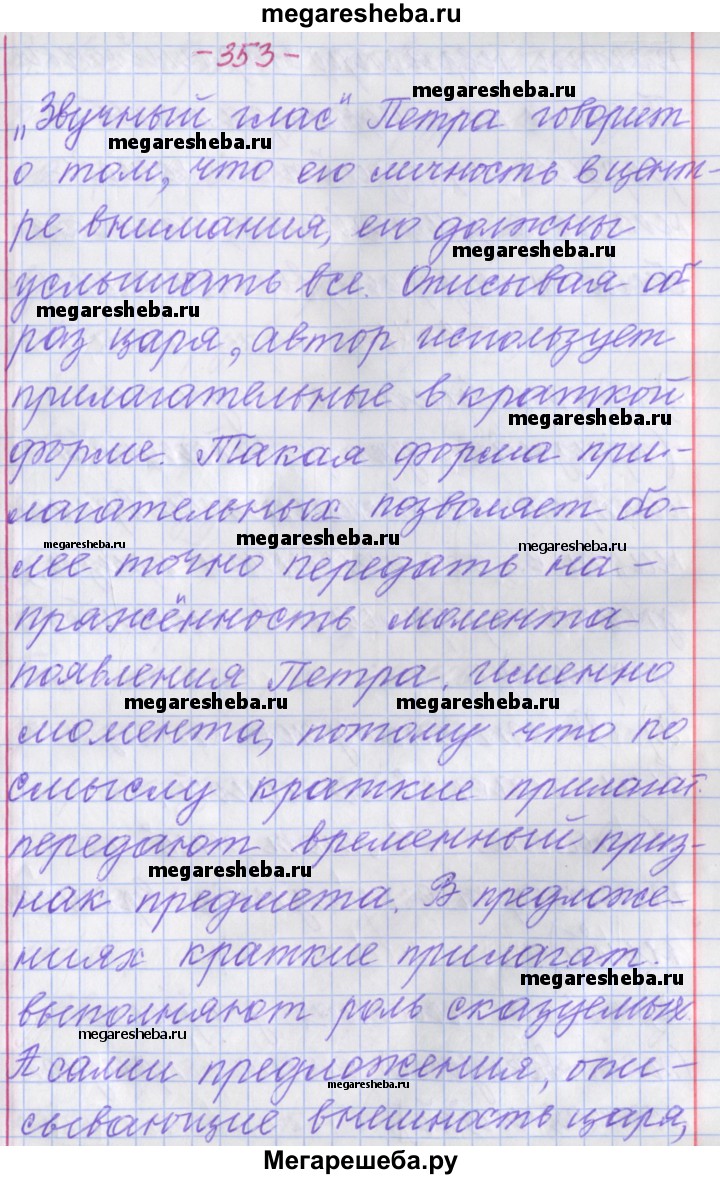 megaresheba.ru
- 353 -
megaresheba.ru
„Звучный глас" Петра говорит
megaresheba.ru
о том, что его личность в цент-
ре внимания, его должны
megaresheba.ru
услышать все. Описывая об
megaresheba.ru
раз царя, автор использует
прилагательные в краткой
megaresheba.ru
форме. Такая форма при-
лагательных позволяет бо-
megaresheba.ru
megaresheba.ru
megaresheba.ru
лее точно передать на-
пряжённость момента
появления Петра. Именно
megaresheba.ru
megaresheba.ru
момента, потому что по
смыслу краткие прилагат.
передают временный приз-
megaresheba.ru
нак предмета. В предложе-
ниях краткие прилагат.
megaresheba.ru
выполняют роль сказуемых.
megaresheba.ru
А сами предложения, опи-
megaresheba.ru
сывающие внешность царя,
Мегарешеба.ру